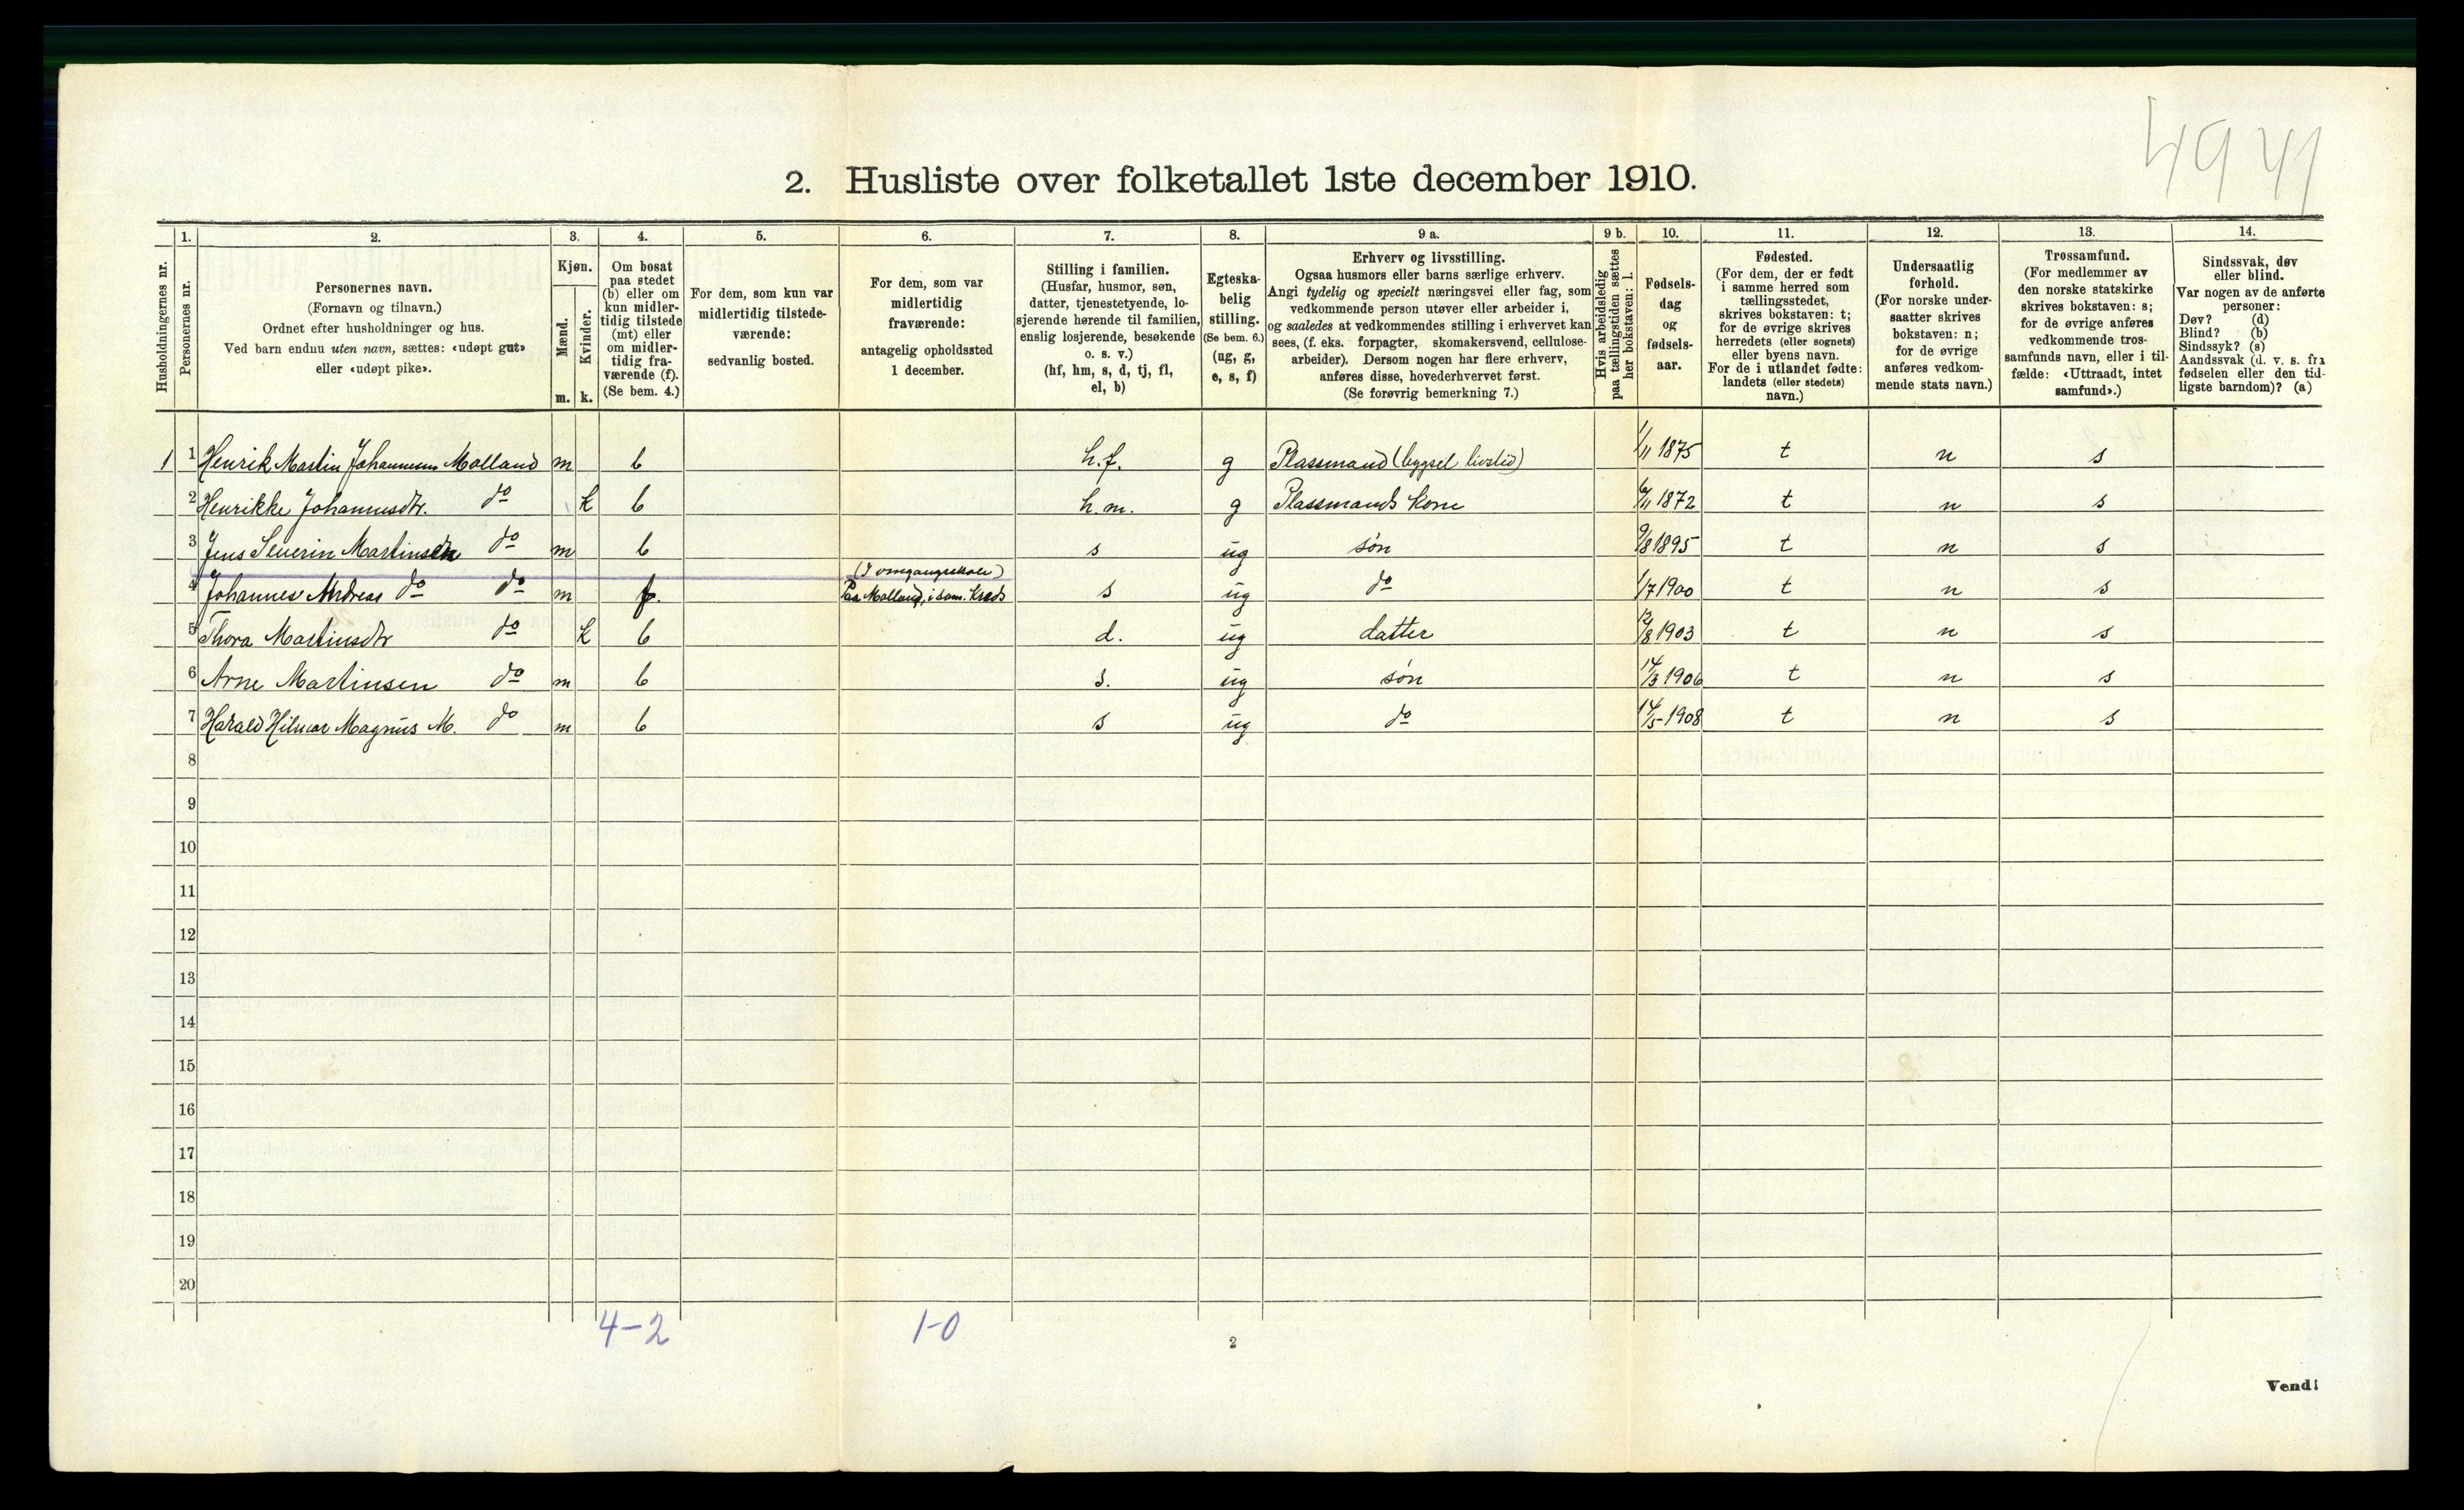 4941
2. Husliste over folketallet 1ste december 1910.
Husholdningernes nr.
1. Personernes nr.
2. Personernes navn.
(Fornavn og tilnavn.)
Ordnet efter husholdninger og hus.
Ved barn endnu uten navn, sættes: «udøpt gut»
eller «udøpt pike».
3. Kjøn.
Mænd. m.
Kvinder. k.
4. Om bosat
paa stedet
(b) eller om
kun midler-
tidig tilstede
(mt) eller
om midler-
tidig fra-
værende (f).
(Se bem. 4.)
5. For dem, som kun var
midlertidig tilstede-
værende:
sedvanlig bosted.
6. For dem, som var
midlertidig
fraværende:
antagelig opholdssted
1 december.
7. Stilling i familien.
(Husfar, husmor, søn,
datter, tjenestetyende, lo-
sjerende hørende til familien,
enslig losjerende, besøkende
o. s. v.)
(hf, hm, s, d, tj, fl,
el, b)
8. Egteska-
belig
stilling.
(Se bem. 6.)
(ug, g,
e, s, f)
9 a. Erhverv og livsstilling.
Ogsaa husmors eller barns særlige erhverv.
Angi tydelig og specielt næringsvei eller fag, som
vedkommende person utøver eller arbeider i,
og saaledes at vedkommendes stilling i erhvervet kan
sees, (f. eks. forpagter, skomakersvend, cellulose-
arbeider). Dersom nogen har flere erhverv,
anføres disse, hovederhvervet først.
(Se forøvrig bemerkning 7.)
9 b. Hvis arbeidsledig
paa tællingstiden sættes
her bokstaven: l.
10. Fødsels-
dag
og
fødsels-
aar.
11. Fødested.
(For dem, der er født
i samme herred som
tællingsstedet,
skrives bokstaven: t;
for de øvrige skrives
herredets (eller sognets)
eller byens navn.
For de i utlandet fødte:
landets (eller stedets)
navn.)
12. Undersaatlig
forhold.
(For norske under-
saatter skrives
bokstaven: n;
for de øvrige
anføres vedkom-
mende stats navn.)
13. Trossamfund.
(For medlemmer av
den norske statskirke
skrives bokstaven: s;
for de øvrige anføres
vedkommende tros-
samfunds navn, eller i til-
fælde: «Uttraadt, intet
samfund».)
14. Sindssvak, døv
eller blind.
Var nogen av de anførte
personer:
Døv? (d)
Blind? (b)
Sindssyk? (s)
Aandssvak (d. v. s. fra
fødselen eller den tid-
ligste barndom)? (a)
1 1 Henrik Martin Johannesen Molland m b h.f. g Plassmand (bygsel livstid) 1/11 1875 t n s
2 Henrikke Johannesdtr. do k b h.m. g Plassmands kone 6/11 1872 t n s
3 Jens Severin Martinsen do m b s ug søn 9/8 1895 t n s
(I omgangsskole)
4 Johannes Andreas do do m f. Paa Molland, i sam. kreds s ug do 1/7 1900 t n s
5 Thora Martinsdtr do k b d. ug datter 12/8 1903 t n s
6 Arne Martinsen do m b s. ug søn 14/3 1906 t n s
7 Harald Hilmar Magnus M. do m b s ug do 14/5 1908 t n s
8
9
10
11
12
13
14
15
16
17
18
19
20
4-2 1-0
2
Vend!